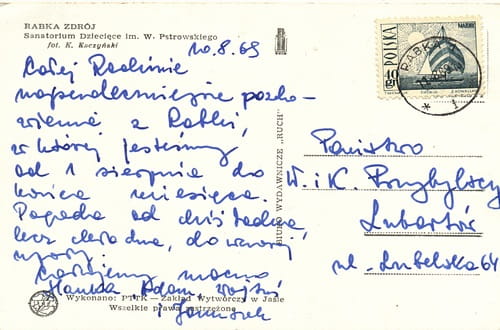 RABKA ZDRÓJ
Sanatorium Dziecięce im. W. Pstrowskiego
fot. K. Kaczyński
10.8.69
Całej Rodzinie
najserdeczniejsze pozdro-
wienia z Rabki,
w której jesteśmy
od 1 sierpnia do
końca miesiąca.
Pogoda od dziś ładna,
lecz chłodna, do wczoraj
Całujemy mocno
Hanka Adam,
i Januszek
BIURO WYDAWNICZE „RUCH"
Wykonano: PTTK — Zakład Wytwórczy w Jaśle
Wszelkie prawa zastrzeżone
POLSKA
40
GR
RABKA
1
Państwo
W. i K. Przybylscy
Lubartów
ul. Lubelska 64